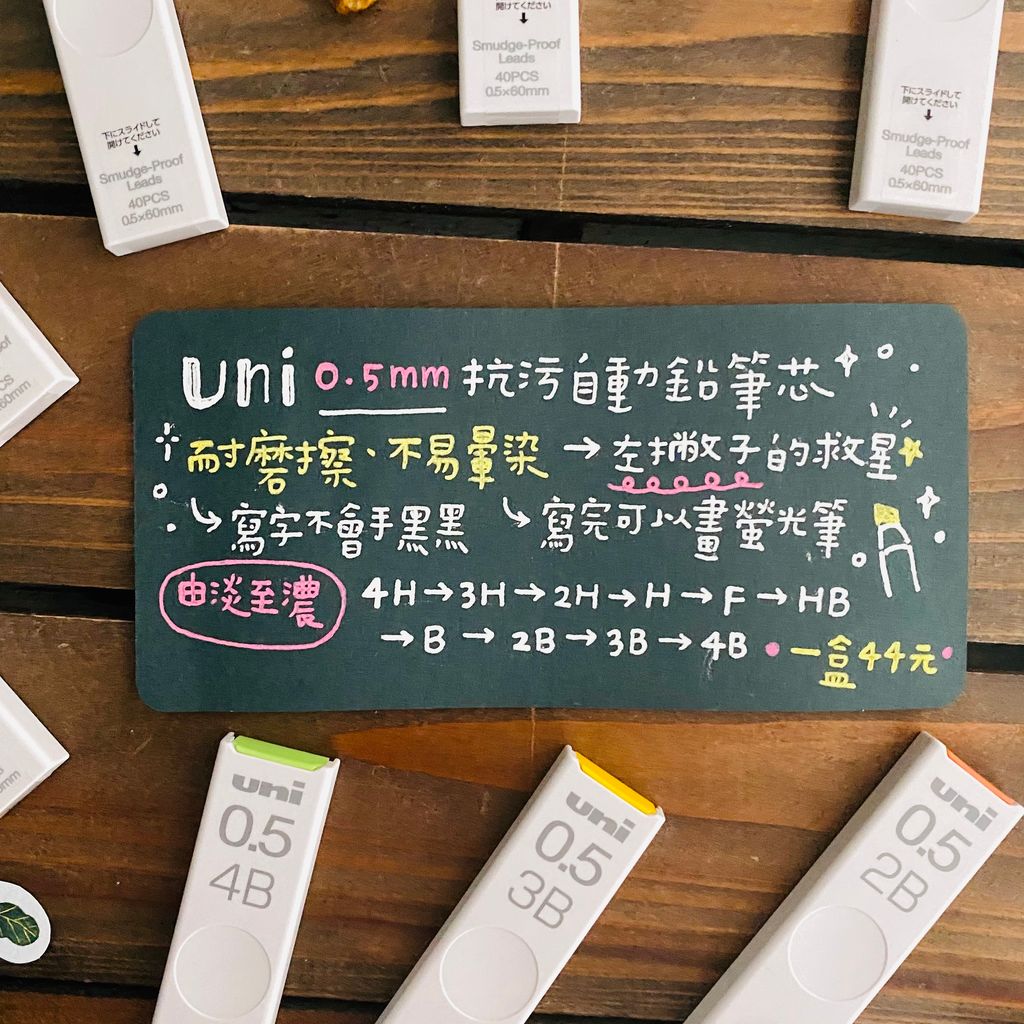 下にスライドして
開けてください
Smudge-Proof
Leads
40PCS
0.5×60mm
開けてください
Smudge-Proof
Leads
40PCS
0.5×60mm
下にスライドして
開けてください
Smudge-Proof
Leads
40PCS
0.5×60mm
uni 0.5mm 抗污自動鉛筆芯
耐磨擦、不易暈染 → 左撇子的救星
↳ 寫字不會手黑黑 ↳ 寫完可以畫螢光筆
由淡至濃 4H→3H→2H→H→F→HB
→B→2B→3B→4B • 一盒44元 •
uni
0.5
4B
uni
0.5
3B
uni
0.5
2B